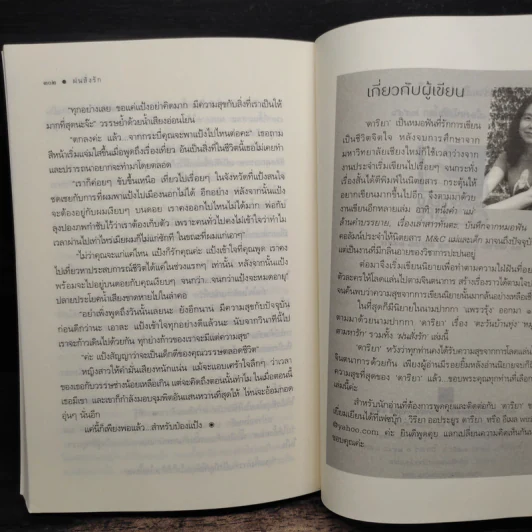 ๑๐๒ ● พันธ์รัก
"ทุกอย่างเลย ขอแค่แป้งอย่าคิดมาก มีความสุขกับสิ่งที่เราเป็นให้
มากที่สุดนะจ๊ะ" วรรษย้ำด้วยน้ำเสียงอ่อนโยน
"ตกลงค่ะ แล้ว...จากกระบี่คุณจะพาแป้งไปไหนต่อคะ" เธอถาม
สีหน้าเริ่มแจ่มใสขึ้นเมื่อพูดถึงเรื่องเที่ยว อันเป็นสิ่งที่ในชีวิตนี้เธอไม่เคยทำ
และปรารถนาอยากจะทำมาโดยตลอด
"เราก็ค่อยๆ ขับขึ้นเหนือ เที่ยวไปเรื่อยๆ ในจังหวัดที่แป้งสนใจ
ชดเชยกับการที่ผมพาแป้งไปเมืองนอกไม่ได้ อีกอย่าง หลังจากนั้นแป้ง
จะต้องอยู่กับผมเงียบๆ บนดอย เราคงออกไปไหนไม่ได้มาก พ่อกับ
ลุงปองภพกำชับไว้ว่าเราต้องเก็บตัว เพราะคนทั่วไปคงไม่เข้าใจว่าทำไม
เวลาผ่านไปเท่าไหร่เมียผมก็ไม่แก่ซักที ในขณะที่ผมแก่เอาๆ"
"ไม่ว่าคุณจะแก่แค่ไหน แป้งก็รักคุณค่ะ แป้งเข้าใจที่คุณพูด เราคง
ไปเที่ยวหาประสบการณ์ชีวิตได้แค่ในช่วงแรกๆ เท่านั้น หลังจากนั้นแป้ง
พร้อมจะไปอยู่บนดอยกับคุณเงียบๆ จนกว่า...จนกว่าแป้งจะหมดอายุ"
ปลายประโยคน้ำเสียงขาดหายไปในลำคอ
"อย่าเพิ่งพูดถึงวันนั้นเลยนะ ยังอีกนาน มีความสุขกับปัจจุบัน
ก่อนดีกว่านะ เอาละ แป้งเข้าใจทุกอย่างดีแล้วนะ นับจากวินาทีนี้ไป
เราจะก้าวเดินไปด้วยกัน ทุกย่างก้าวของเราจะมีแต่ความสุข"
"ค่ะ แป้งสัญญาว่าจะเป็นเด็กดีของคุณวรรษตลอดชีวิต"
หญิงสาวให้คำมั่นเสียงหนักแน่น แม้จะแอบเศร้าใจลึกๆ ว่าเวลา
ของเธอกับวรรษช่างน้อยเหลือเกิน แต่จะคิดถึงตอนนั้นทำไม ในเมื่อตอนนี้
เธอมีเขา และเขาก็กำลังมอบจุมพิตอันแสนหวานที่สุดให้ ไหนจะอ้อมกอด
อุ่นๆ นั่นอีก
แค่นี้ก็เพียงพอแล้ว...สำหรับป่องแป้ง
เกี่ยวกับผู้เขียน
'ดาริยา' เป็นหมอฟันที่รักการเขียน
เป็นชีวิตจิตใจ หลังจบการศึกษาจาก
มหาวิทยาลัยเชียงใหม่ก็ใช้เวลาว่างจาก
งานประจำเริ่มเขียนไปเรื่อยๆ จนกระทั่ง
เรื่องสั้นได้ตีพิมพ์ในนิตยสาร กระตุ้นให้
อยากเขียนมากขึ้นไปอีก จึงตามมาด้วย
งานเขียนอีกหลายเล่ม อาทิ
บันทึกจากหมอฟัน
คอลัมน์ประจำให้นิตยสาร M&C แม่และเด็ก มาจนถึงปัจจุบัน
แต่เป็นงานที่มีกลิ่นอายของวิชาการปะปนอยู่
ต่อมาจึงเริ่มเขียนนิยายเพื่อทำตามความใฝ่ฝัน
ตัวละครให้โลดแล่นไปตามจินตนาการ สร้างเรื่องราวได้ตามใจ
จนค้นพบว่าความสุขจากการเขียนนิยายนั้นมากล้นอย่างเหลือ
ในที่สุดก็มีนิยายในนามปากกา แพรวรุ้ง ออกมา ๑
ตามมาด้วยนามปากกา 'ดาริยา' เรื่อง
'ดาริยา' หวังว่าทุกท่านคงได้รับความสุขจากการโลดแล่น
จินตนาการด้วยกัน เพียงผู้อ่านมีรอยยิ้มหลัง
ความสุขที่สุดของ 'ดาริยา' แล้ว...ขอบพระคุณทุกท่านที่
เล่มนี้ค่ะ
สำหรับนักอ่านที่ต้องการพูดคุยและติดต่อกับ 'ดาริยา'
เยี่ยมเยียนได้ที่เฟซบุ๊ก
@yahoo.com ค่ะ ยินดีพูดคุย แลกเปลี่ยนความคิดเห็นกับ
ขอบคุณค่ะ